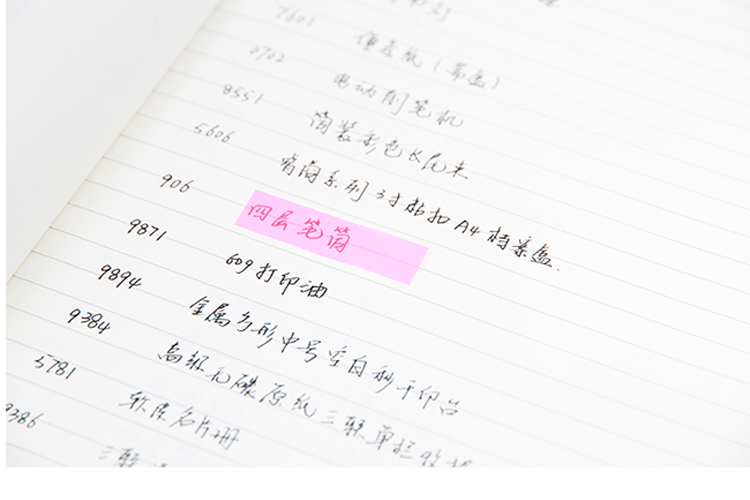 7601 便签纸(带盒)
0702 电动削笔机
8551 筒装彩色长尾夹
5606 有商系列3寸粘扣A4档案盒.
906 四层笔筒
9871 609打印油
9894 金属方形中号空白秒干印台
9384 高级无碳原纸三联单栏收据
5781 软皮名片册
9386 三联